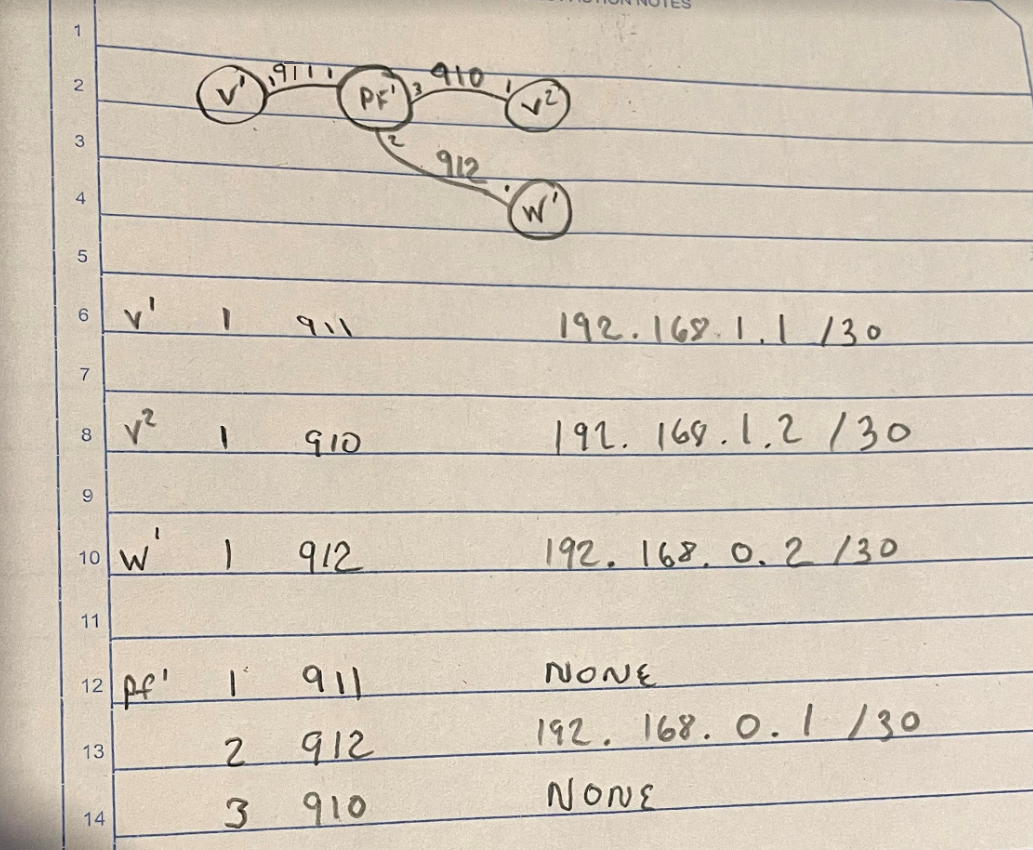 ACTION NOTES
1
2 V' 1 911 1 PF' 3 910 1 V²
3 2
912
4 W'
5
6 V' 1 911 192.168.1.1 /30
7
8 V² 1 910 192.168.1.2 /30
9
10 W' 1 912 192.168.0.2 /30
11
12 Pf' 1 911 NONE
13 2 912 192.168.0.1 /30
14 3 910 NONE